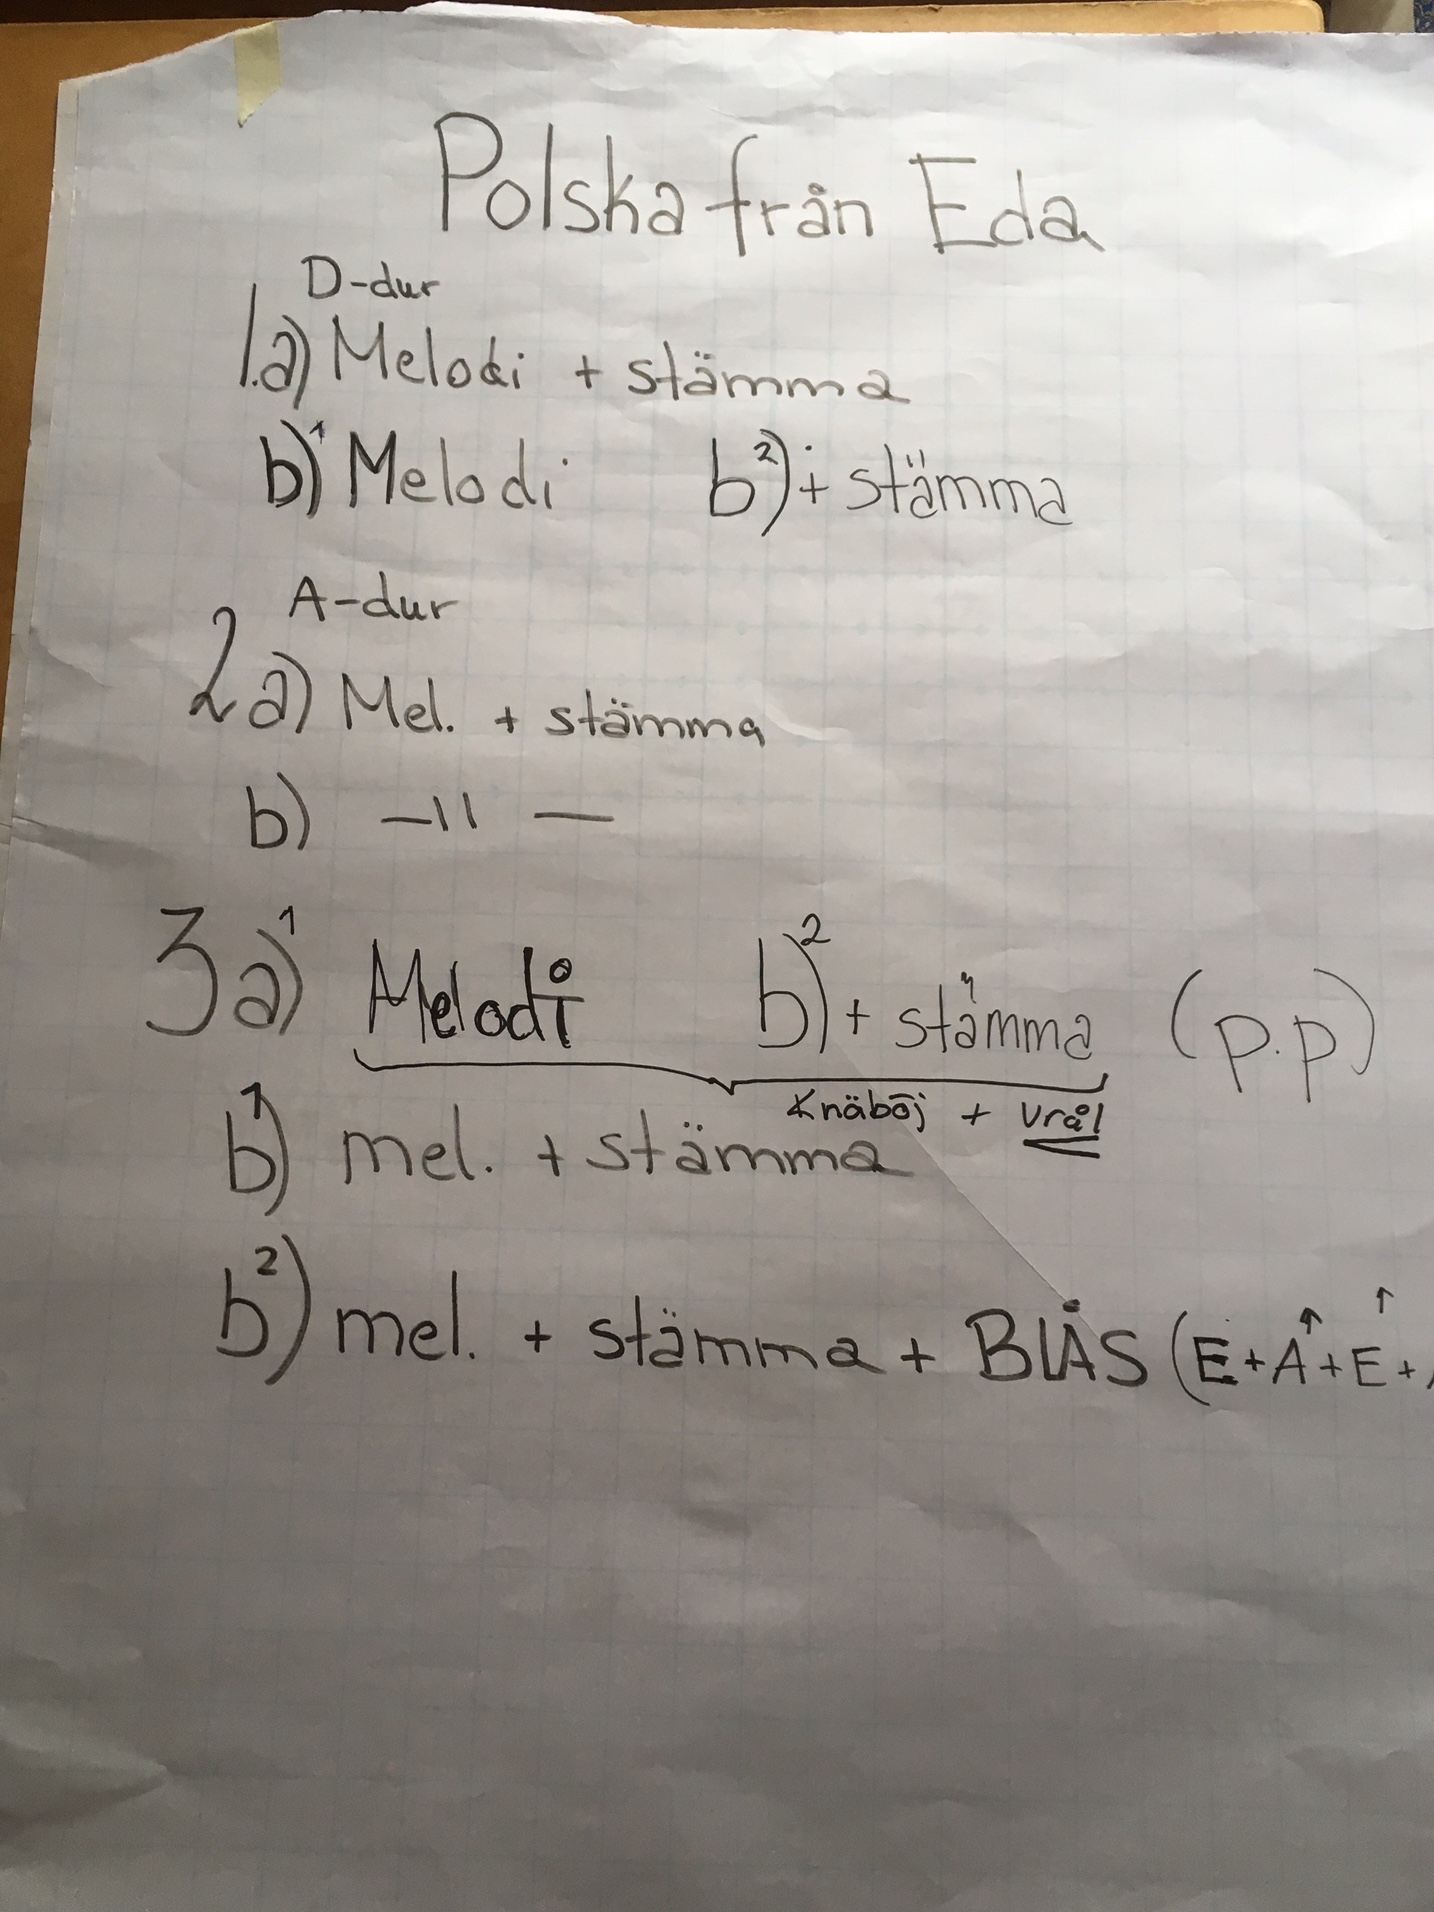 Polska från Eda
D-dur
1.a) Melodi + stämma
b)¹ Melodi b²) + stämma
A-dur
2 a) Mel. + stämma
b) —11 —
3 a)¹ Melodi b)² + stämma (p.p)
Knäböj + vrål
b¹) mel. + stämma
b²) mel. + stämma + BLÅS (E+A↑+E↑+